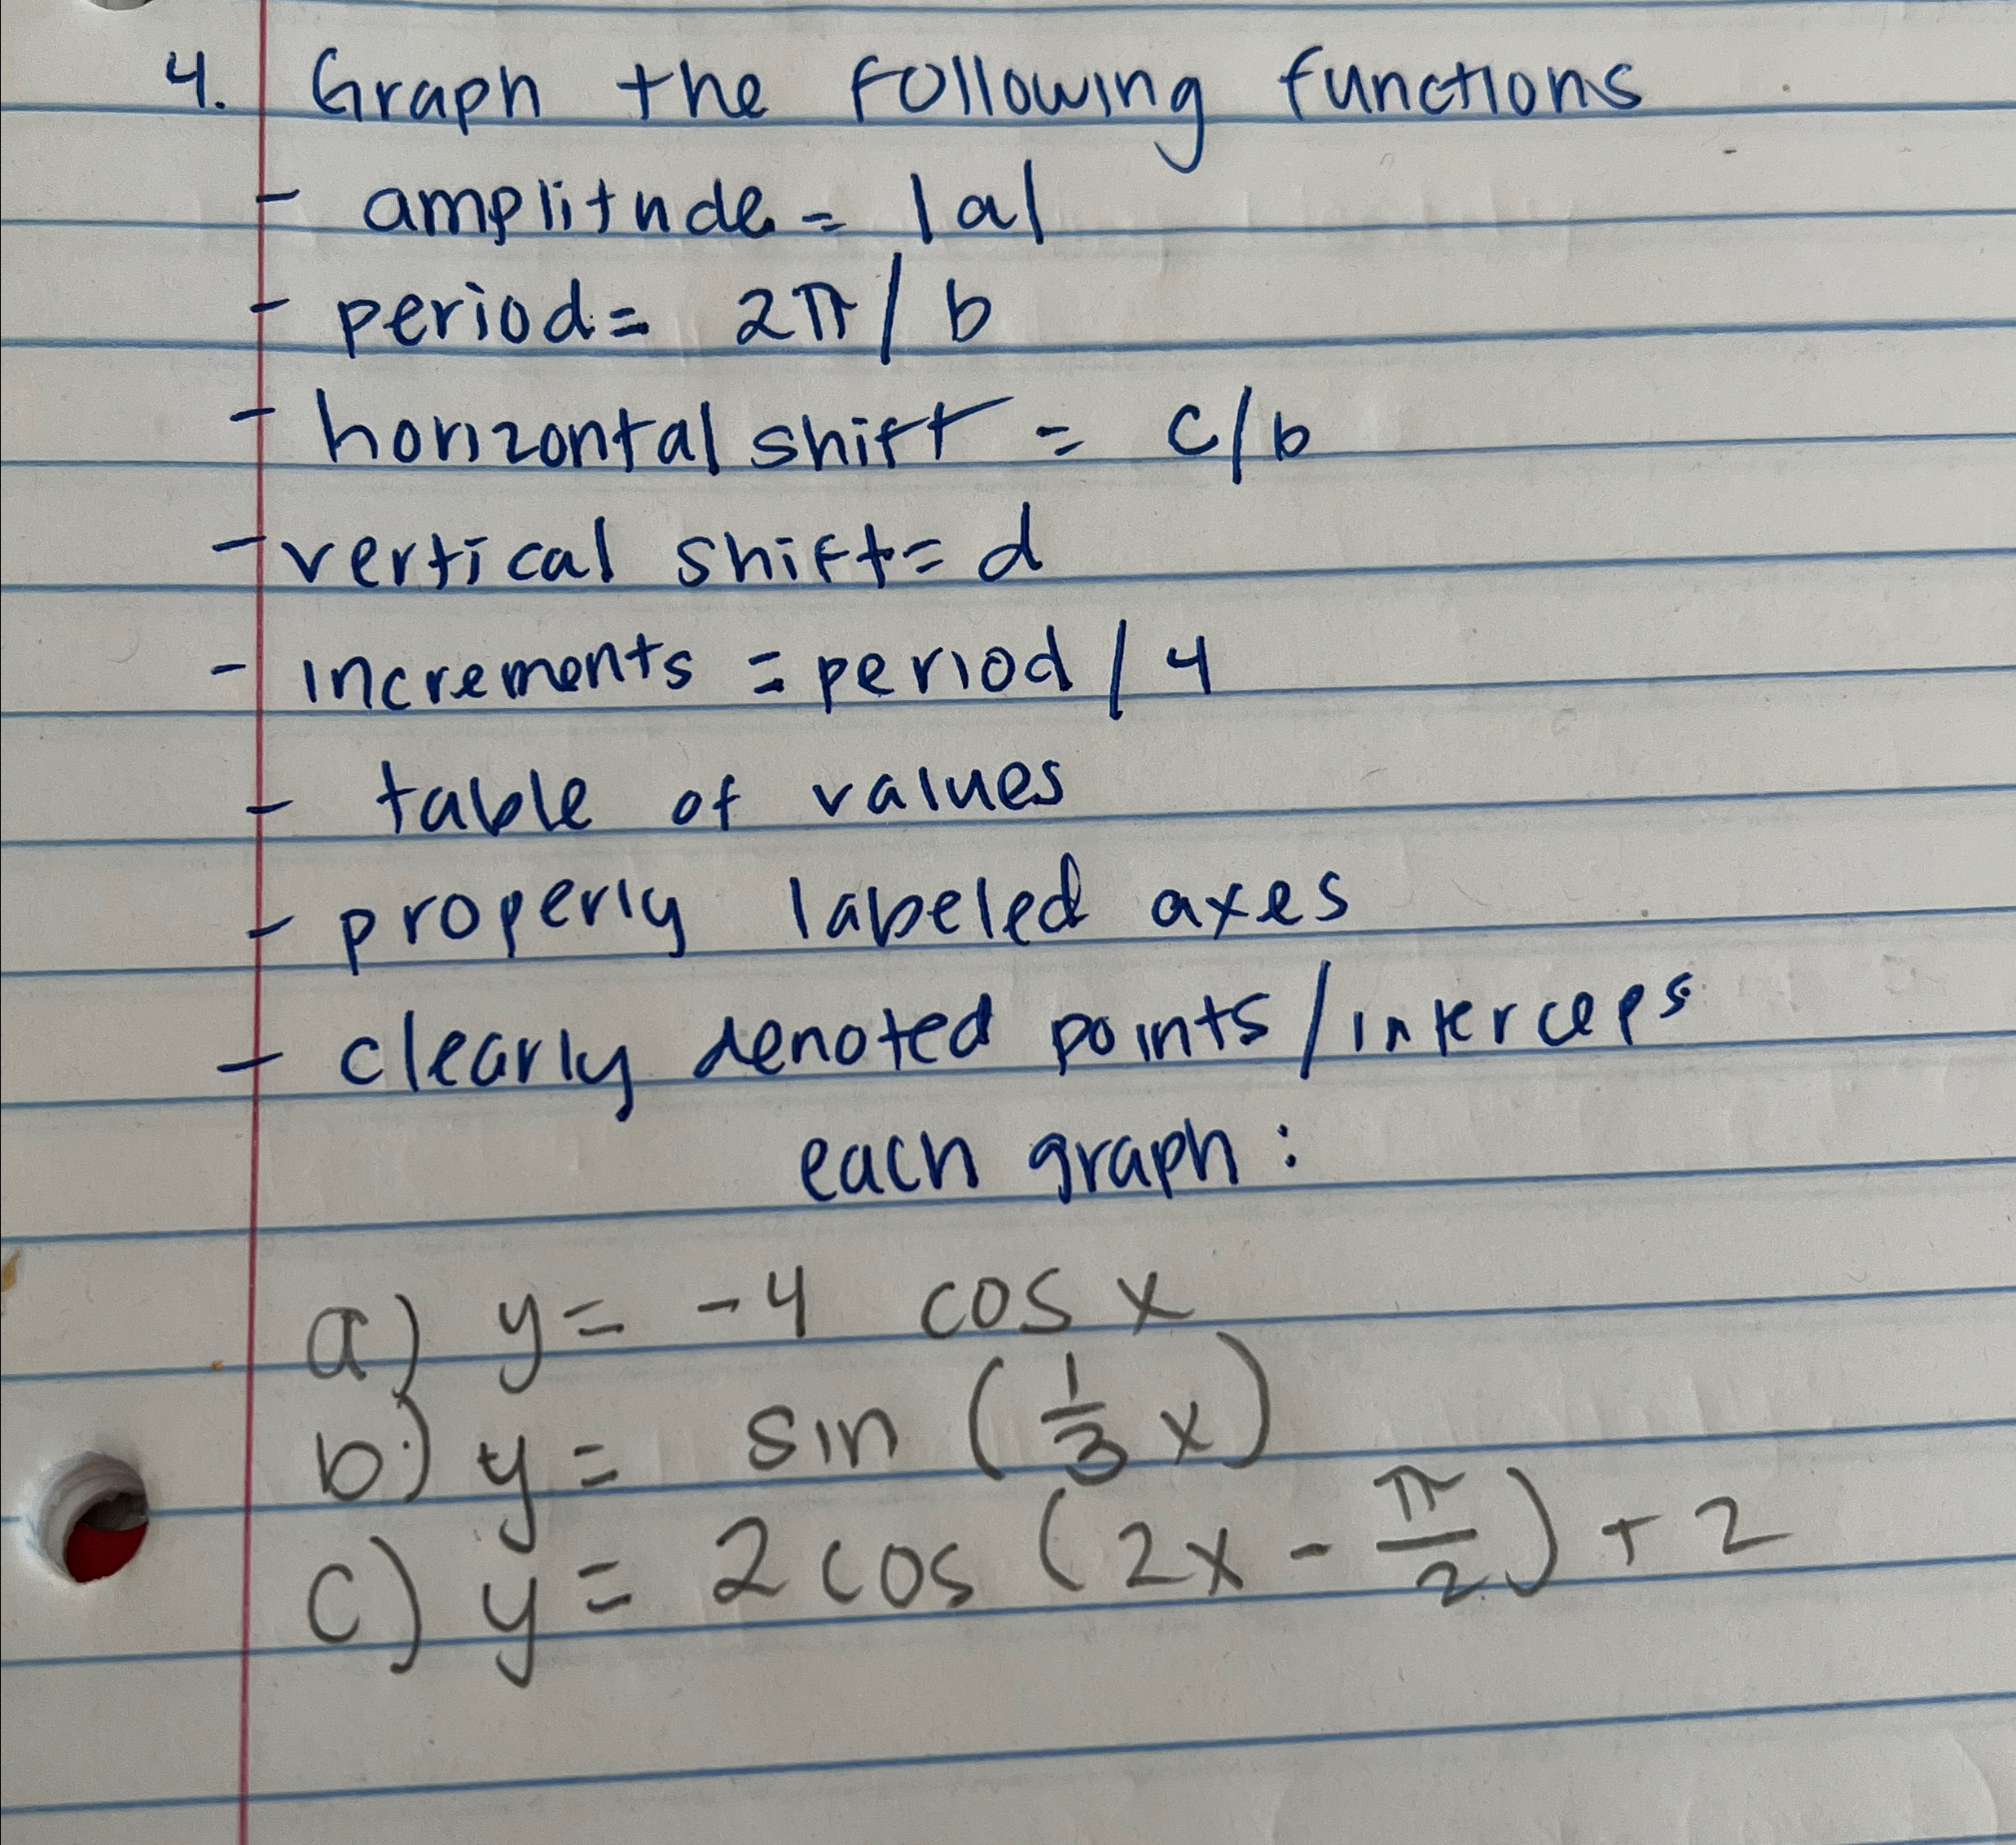 4. Graph the following functions
- amplitude = |a|
- period = 2π / b
- horizontal shift = c/b
- vertical shift = d
- increments = period / 4
- table of values
- properly labeled axes
- clearly denoted points / interceps
each graph :
a) y = -4 cos x
b) y = sin (1/3 x)
c) y = 2 cos (2x - π/2) + 2